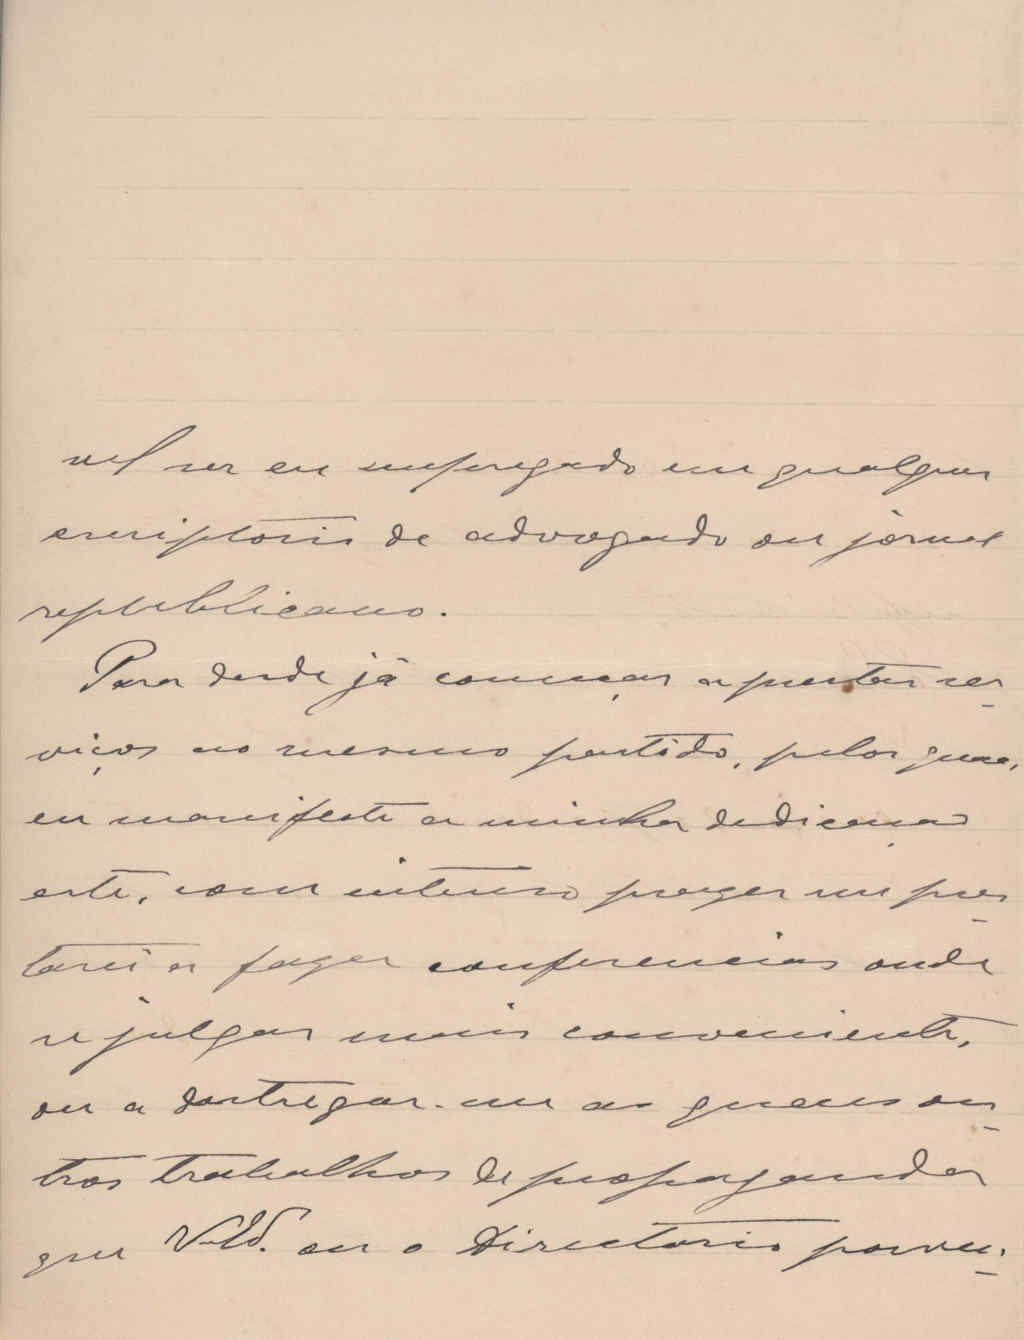 vel ser eu empregado em qualquer
escriptorio de advogado ou jornal
republicano.
Para desde já começar a prestar ser-
viços ao mesmo partido, pelos quaes,
eu manifeste a minha dedicação
este, com intenso prazer me pres-
tarei a fazer conferencias onde
se julgar mais conveniente,
ou a entregar-me a quaesou-
tros trabalhos de propaganda
que V. Ex. ou o Directorio